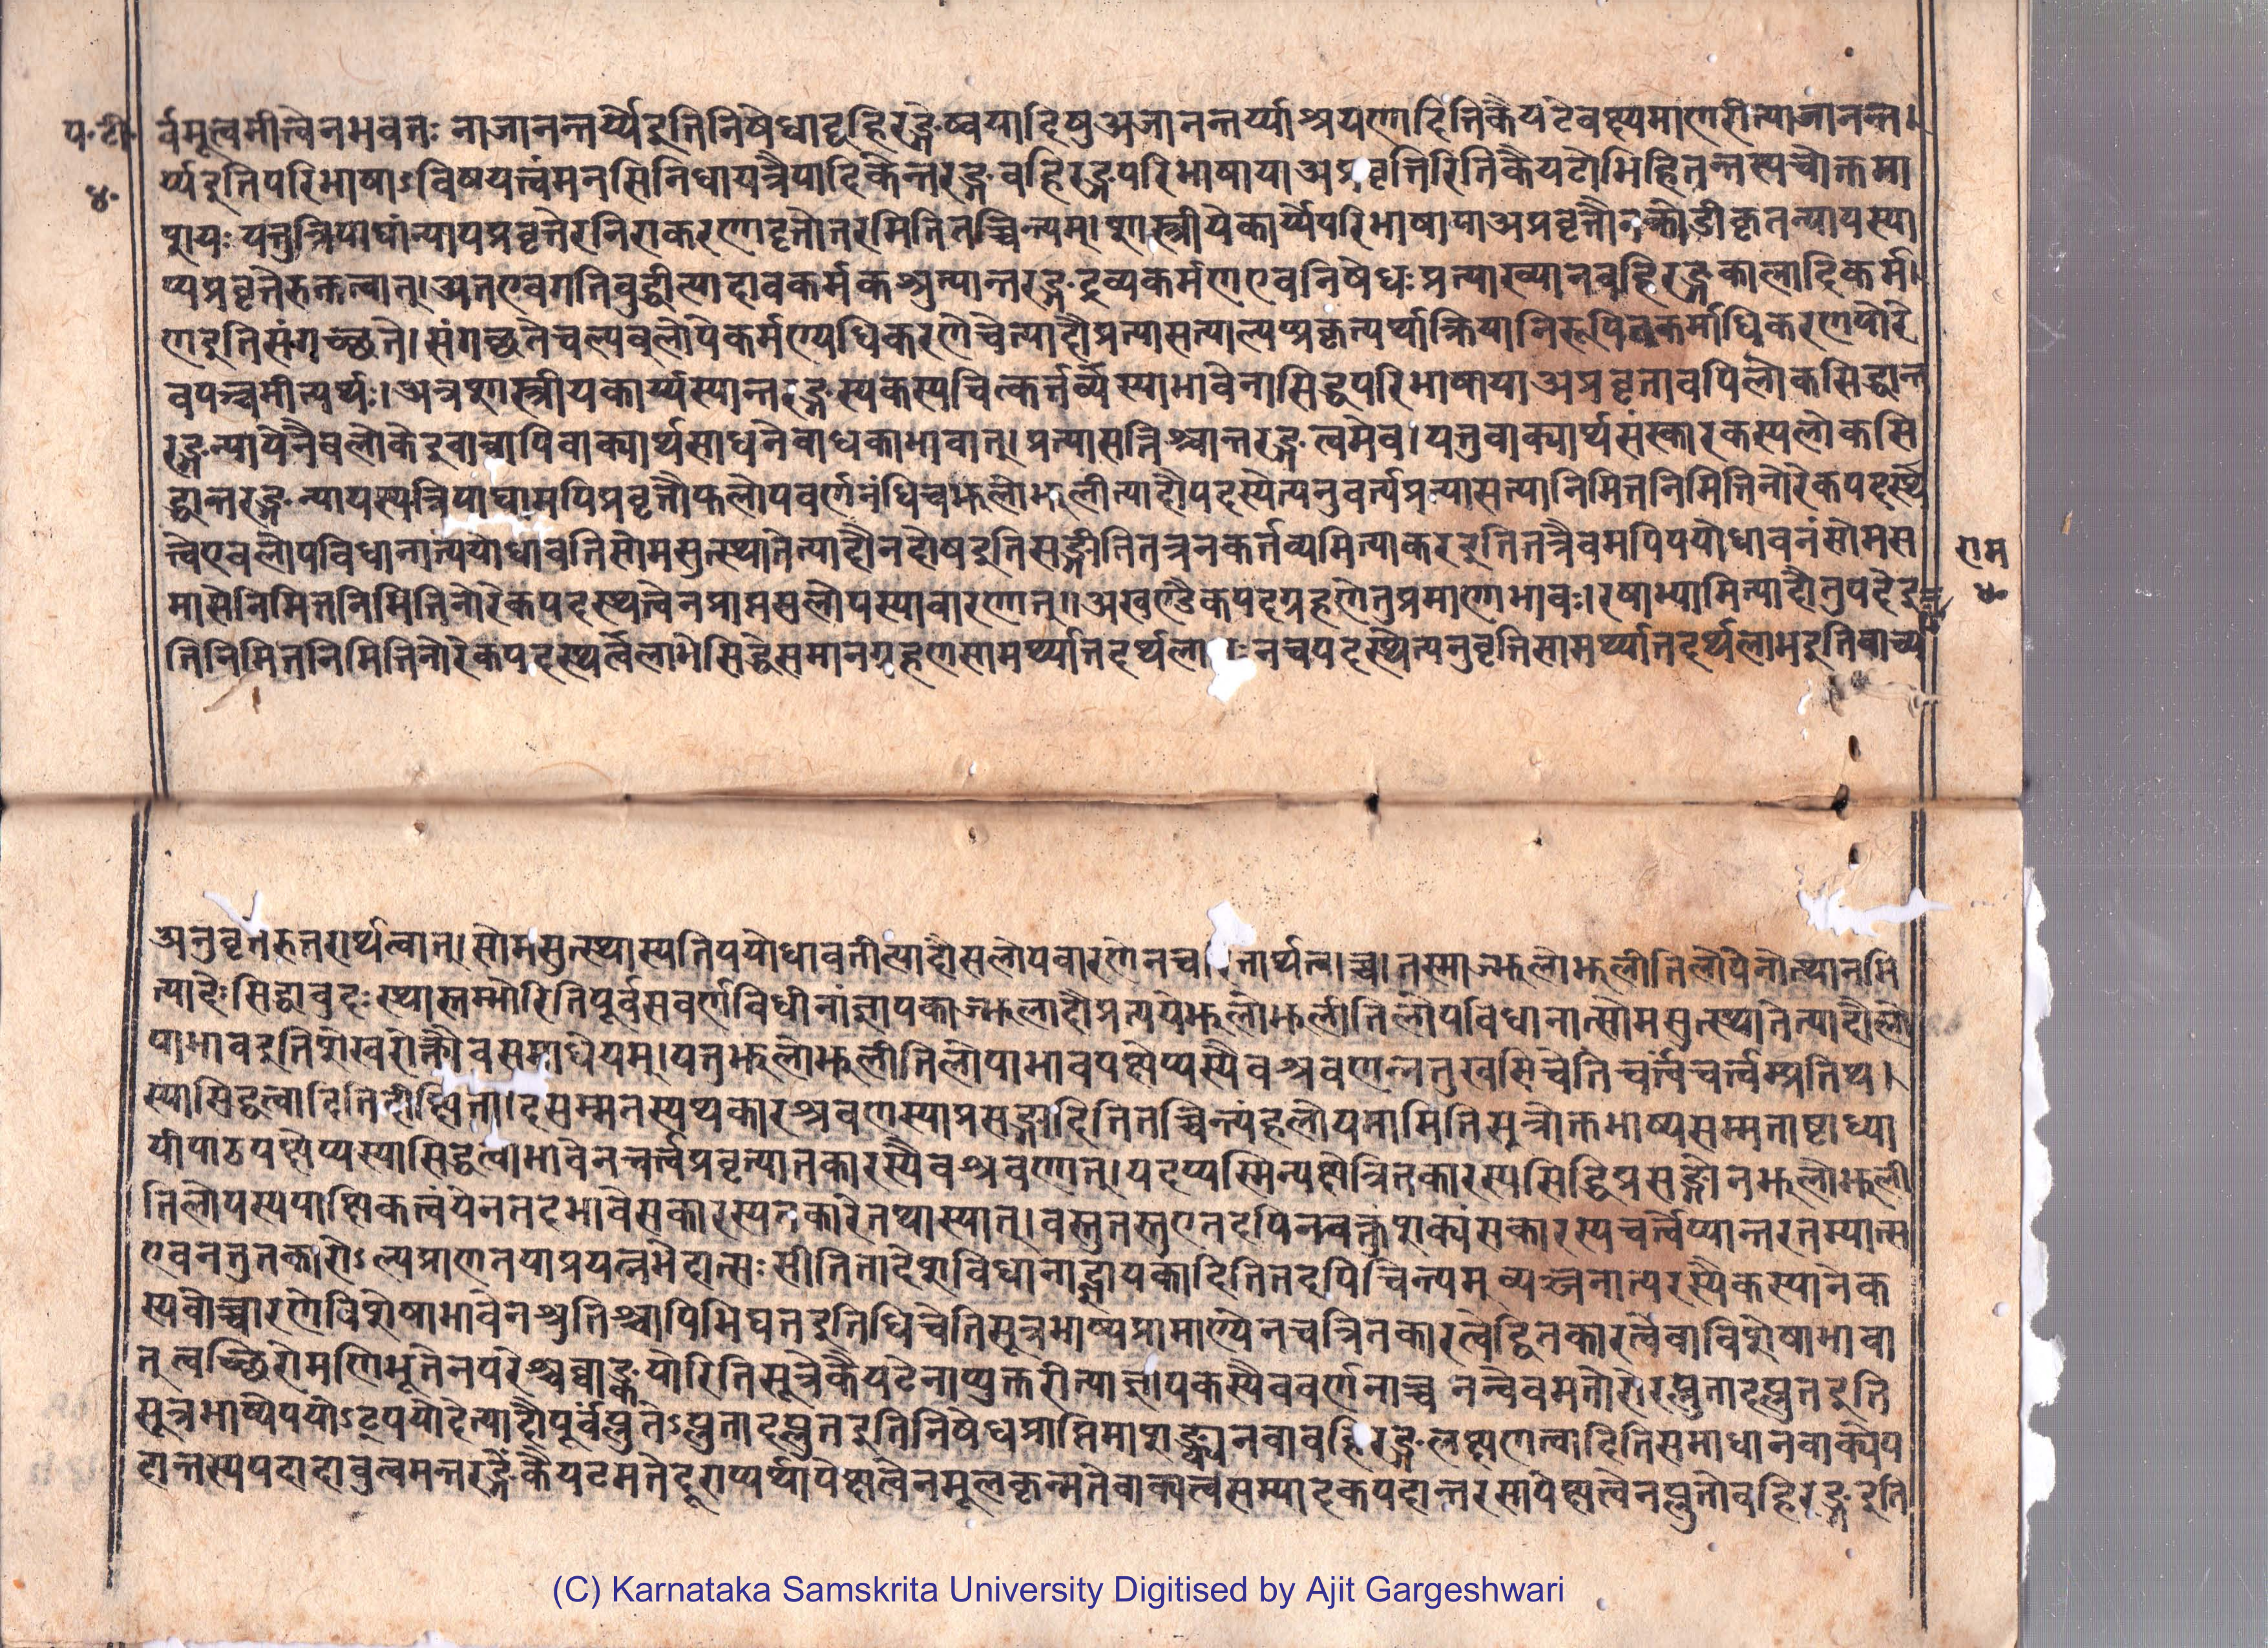 प॰टी॰ र्वमूत्वमीत्वेनभवतः नाजानन्तर्य्येइतिनिषेधाद्बहिरङ्गेष्वयादिषुअजानन्तर्य्याश्रयणादितिकैयटेवक्ष्यमाणरीत्याजानन्त।
४॰ र्य्यइतिपरिभाषाऽविषयत्वंमनसिनिधायत्रैपादिकेन्तरङ्गवहिरङ्गपरिभाषायाअप्रवृत्तिरितिकैयटोभिहितन्तस्यचोक्तमा
शयः यत्तुत्रिपाद्यांन्यायप्रवृत्तेरनिराकरणादृत्तोतरमितितच्चिन्त्यम्। शास्त्रीयेकार्य्येपरिभाषायाअप्रवृत्तौनक्रोडीकृतन्यायस्या
प्यप्रवृत्तेरुक्तत्वात्।अतएवगतिवुद्धीत्यादावकर्मकश्रुत्यान्तरङ्गद्रव्यकर्मणएवनिषेधः प्रत्याख्यानवहिरङ्गकालादिकर्म।
णइतिसंगच्छते।संगच्छतेचल्यवूलोपेकर्मण्यधिकरणेचेत्यादौप्रत्यासत्याल्यप्प्रकृत्यर्थक्रियानिरूपितकर्माधिकरणयोरे
वपञ्चमीत्यर्थः।अत्रशास्त्रीयकार्य्यस्यान्तरङ्गस्यकस्यचित्कर्त्तर्व्यस्याभावेनासिद्धपरिभाषायाअप्रवृत्तावपिलोकसिद्धान्त
रङ्गन्यायेनैवलोकेइवात्रापिवाक्यार्थसाधनेवाधकाभावात्। प्रत्यासत्तिश्चान्तरङ्गत्वमेव।यत्तुवाक्यार्थसंस्कारकस्यलोकसि
द्धान्तरङ्गन्यायस्यत्रिपाद्यामपिप्रवृत्तौफलोपवर्णनंधिचझलोझलीत्यादौपदस्येत्यनुवर्त्यप्रत्यासत्त्यानिमित्तनिमित्तिनोरेकपदस्थ
त्वेएवलोपविधानात्पयोधावतिसोमसुत्स्थातेत्यादौनदोषइतिसङ्गीतितत्रनकर्त्तव्यमित्याकरइतितत्रैवमपिपयोधावनंसोमस राम
मासेनिमित्तनिमित्तिनोरेकपदस्थत्वेनप्राप्तसलोपस्यावारणात्।अखण्डैकपदग्रहणेतुप्रमाणाभावः।रषाभ्यामित्यादौतुपदेइ ४॰
तिनिमित्तनिमित्तिनोरेकपदस्थर्त्वलाभेसिद्धेसमानग्रहणसामर्थ्यात्तदर्थला ः नचपदस्येत्यनुवृत्तिसामर्थ्यात्तदर्थलाभइतिवाच्य
अनुवृत्तेरुत्तरार्थत्वात्।सोमसुत्स्थास्यतिपयोधावतीत्यादौसलोपवारणेनच रितार्थत्वाच्च।तस्माज्झलोझलीतिलोपेनोत्थानमि
त्यादेःसिद्धावुदःस्थास्तम्भोरितिपूर्वसवर्णविधीनांज्ञापकाज्झलादौप्रत्ययेझलोझलीतिलोपविधानात्सोमसुत्स्थातेत्यादौलो
पाभावइतिशेखरोक्तौवसमाधेयम्।यत्तुझलोझलीतिलोपाभावपक्षेप्यस्यैवश्रवणन्नतुखरिचेतिचर्त्वंचर्त्वम्प्रतिथ।
स्यासिद्धत्वादितिदीक्षिता।दिसम्मतस्यथकारश्रवणस्याप्रसङ्गादितितच्चिन्त्यंहलोयमामितिसूत्रोक्तभाष्यसम्मताष्टाध्या
यीपाठपक्षेप्यस्यासिद्धत्वाभावेनचर्त्वप्रवृत्यातकारस्यैवश्रवणात्।यदप्यस्मिन्पक्षेत्रितकारस्यसिद्धिप्रसङ्गोनझलोझली
तिलोपस्यपाक्षिकत्वंयेनतदभावेसकारस्यतकारेतथास्यात्।वस्तुतस्तुएतदपिनवक्तुंशक्यंसकारस्यचर्त्वेप्यान्तरतम्यात्स
एवनतुतकारोऽल्पप्राणतयाप्रयत्नभेदात्सःसीतितादेशविधानाद्ज्ञापकादितितदपिचिन्त्यम् व्यञ्जनात्परस्यैकस्यानेक
स्यवोच्चारणेविशेषाभावेनश्रुतिश्चापिभिद्यतइतिधिचेतिसूत्रभाष्यप्रामाण्येनचत्रितकारत्वेद्वितकारत्वेवाविशेषाभावा
त् त्वच्छिरोमणिभूतेनपरेश्चघाङ्कयोरितिसूत्रेकैयटेनाप्युक्तरीत्याज्ञापकस्यैववर्णनाच्च नन्वेवमतोरोरप्लुतादप्लुतइति
सूत्रभाष्येपयोऽट्पयोदेत्यादौपूर्वप्लुतेऽप्लुतादप्लुतइतिनिषेधप्राप्तिमाशङ्क्यनवावहिरङ्गलक्षणत्वादितिसमाधानवाक्येप
दान्तस्यपदादावुत्वमन्तरङ्गेकैयटमतेदूराप्यर्थापेक्षत्वेनमूलकृन्मतेवाक्यत्वसम्पादकपदान्तरसापेक्षत्वेनप्लुतोवहिरङ्गइति
(C) Karnataka Samskrita University Digitised by Ajit Gargeshwari